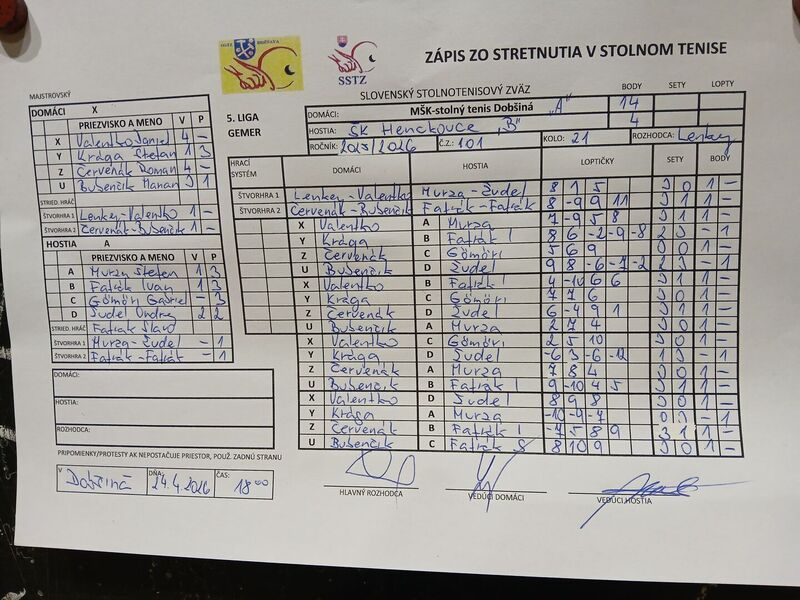 OSTZ ROŽŇAVA
SSTZ
ZÁPIS ZO STRETNUTIA V STOLNOM TENISE
SLOVENSKÝ STOLNOTENISOVÝ ZVÄZ
BODY SETY LOPTY
MAJSTROVSKÝ
5. LIGA
GEMER
DOMÁCI: MŠK-stolný tenis Dobšiná "A" 14
HOSTIA: ŠK Henckovce "B" 4
ROČNÍK: 2025/2026 Č.Z.: 101 KOLO: 21 ROZHODCA: Lenkey
DOMÁCI X
PRIEZVISKO A MENO V P
X Valentko Daniel 4 –
Y Krága Štefan 1 3
Z Červenák Roman 4 –
U Bubenčík Marian 3 1
STRIED. HRÁČ
ŠTVORHRA 1 Lenkey-Valentko 1 –
ŠTVORHRA 2 Červenák-Bubenčík 1 –
HOSTIA A
PRIEZVISKO A MENO V P
A Murza Štefan 1 3
B Fafrák Ivan 1 3
C Gömöri Gabriel – 3
D Šudel Ondrej 2 2
STRIED. HRÁČ Fafrák Slavo
ŠTVORHRA 1 Murza-Šudel – 1
ŠTVORHRA 2 Fafrák-Fafrák – 1
HRACÍ SYSTÉM DOMÁCI HOSTIA LOPTIČKY SETY BODY
ŠTVORHRA 1 Lenkey-Valentko Murza-Šudel 8 1 5 3 0 1 –
ŠTVORHRA 2 Červenák-Bubenčík Fafrák-Fafrák 8 -9 9 11 3 1 1 –
X Valentko A Murza 7 -9 5 8 3 1 1 –
Y Krága B Fafrák I 8 6 -2 -9 -8 2 3 – 1
Z Červenák C Gömöri 5 6 9 3 0 1 –
U Bubenčík D Šudel 9 8 -6 -7 -2 2 3 – 1
X Valentko B Fafrák I 4 -10 6 6 3 1 1 –
Y Krága C Gömöri 7 7 6 3 0 1 –
Z Červenák D Šudel 6 -4 9 1 3 1 1 –
U Bubenčík A Murza 2 7 4 3 0 1 –
X Valentko C Gömöri 2 5 10 3 0 1 –
Y Krága D Šudel -6 3 -6 -12 1 3 – 1
Z Červenák A Murza 7 8 4 3 0 1 –
U Bubenčík B Fafrák I 9 -10 4 5 3 1 1 –
X Valentko D Šudel 8 9 8 3 0 1 –
Y Krága A Murza -10 -9 -7 0 3 – 1
Z Červenák B Fafrák I -7 5 8 9 3 1 1 –
U Bubenčík C Fafrák S 8 10 9 3 0 1 –
DOMÁCI:
HOSTIA:
ROZHODCA:
PRIPOMIENKY/PROTESTY AK NEPOSTAČUJE PRIESTOR, POUŽ. ZADNÚ STRANU
V Dobšiná DŇA: 24.4.2026 ČAS: 18 00
HLAVNÝ ROZHODCA VEDÚCI DOMÁCI VEDÚCI HOSTIA